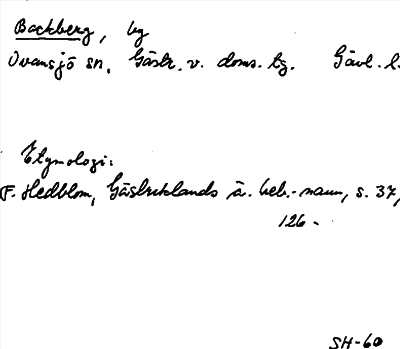 Backberg, by
Ovansjö sn, Gästr. v. doms. tg. Gävl. l.
Etymologi:
F. Hedblom, Gästriklands ä. beb.-namn, s. 37,
126 -
SH-60